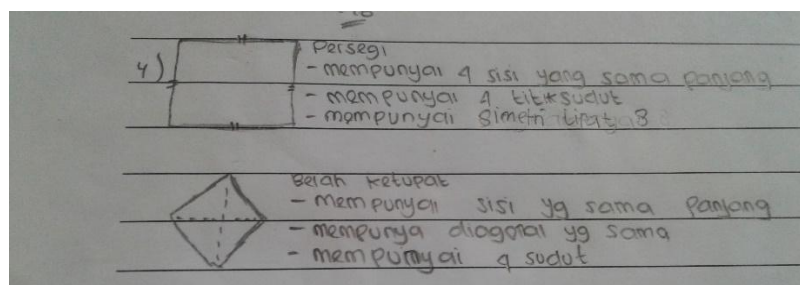 4) Persegi
- mempunyai 4 sisi yang sama panjang
- mempunyai 4 titik sudut
- mempunyai Simetri lipat 8
Belah ketupat
- mempunyai sisi yg sama panjang
- mempunya diagonal yg sama
- mempunyai 4 sudut